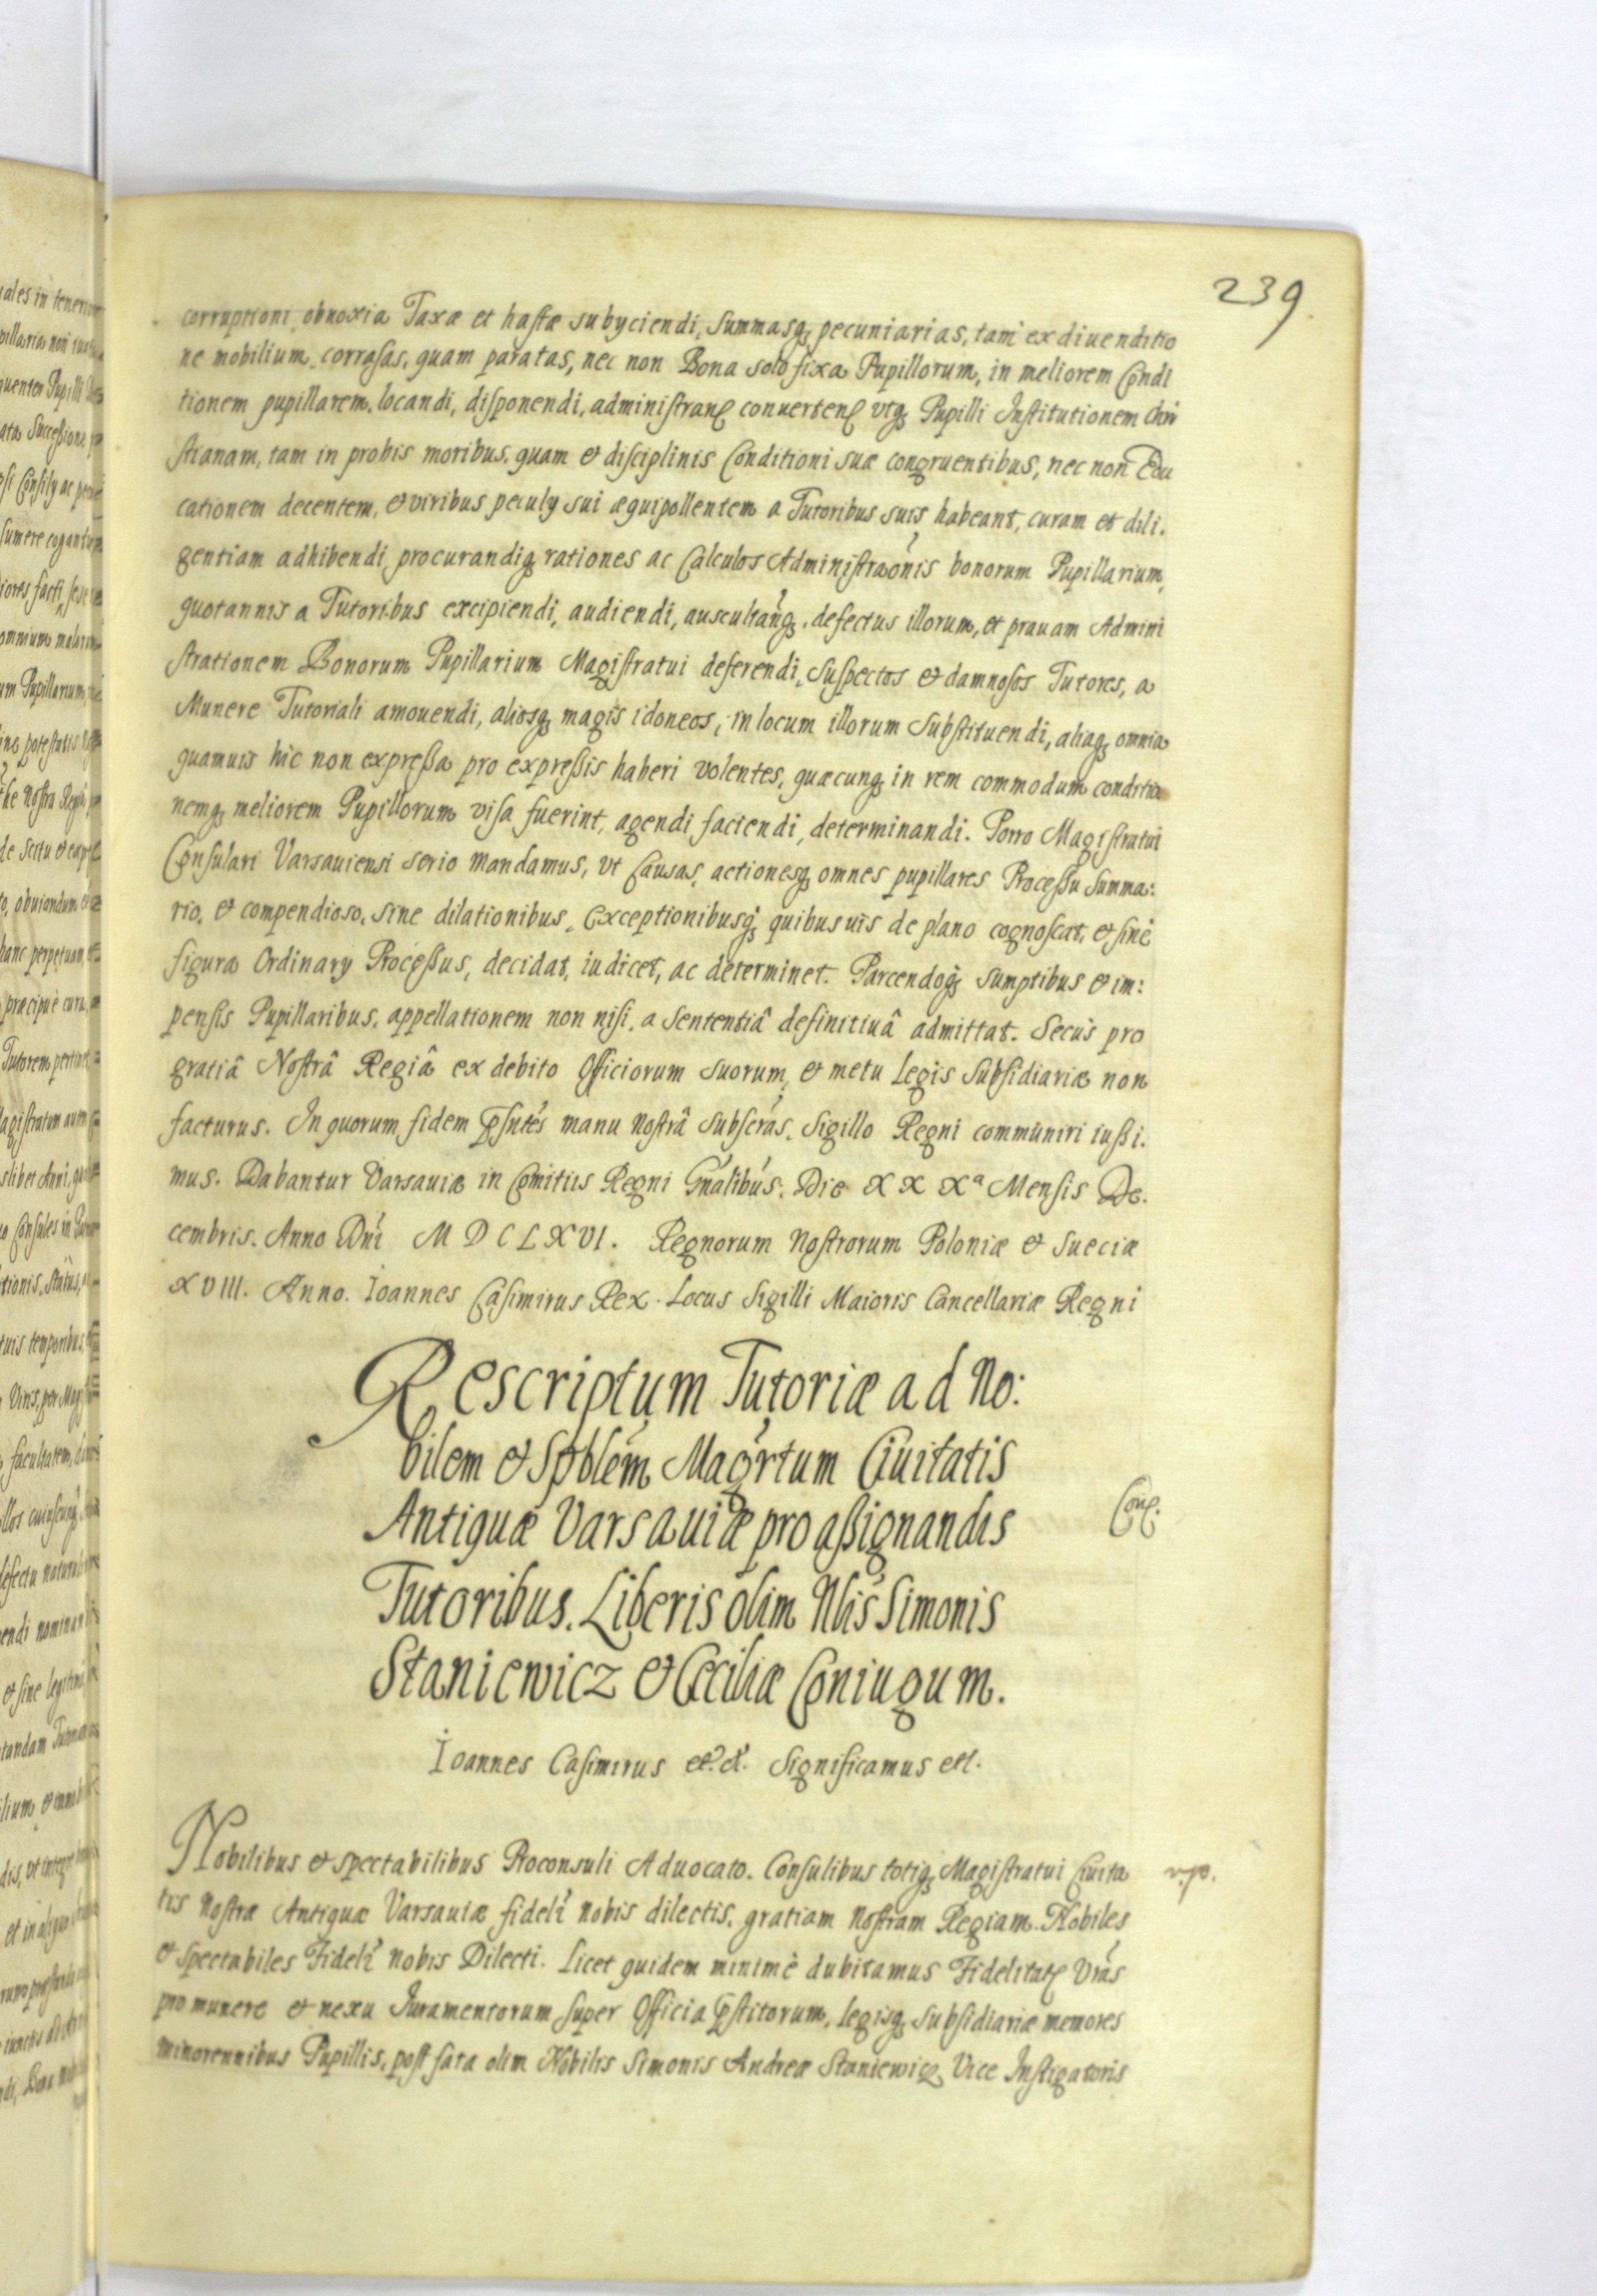 239.
corruptioni obnoxia Taxæ et hastæ subyciendi, Summasq, pecuniarias, tam ex diuenditio
ne mobilium corrasas, quam paratas, nec non Bona solo fixa Pupillorum, in meliorem Condi
tionem pupillarem locandi, disponendi, administran convertend vtq Pupilli Institutionem Chri
stianam, tam in probis moribus quam et disciplinis Conditioni suæ congruentibus, nec non Edu
cationem decentem, et viribus peculy sui æquipollentem a Tutoribus suis habeant, curam et dili.
gentiam adhibendi procurandiq rationes ac Calculos Administraonis bonorum Pupillarium,
quotannis a Tutoribus excipiendi, audiendi, auscultanq, defectus illorum, et prauam Admini
strationem Bonorum Pupillarium Magistratui deferendi, Suspectos et damnosos Tutores, a
Munere Tutoriali amouendi, aliosq magis idoneos, in locum illorum Substituendi, aliaq omnia
quamuis hic non expressa pro expressis haberi volentes, quæcunq in rem commodum conditio
nemq meliorem Pupillorum visa fuerint, agendi faciendi, determinandi. Porro Magistratui
Consulari Varsauiensi serio mandamus, vt Causas, actionesq omnes pupillares Processu Summa:
rio, et compendioso, sine dilationibus, exceptionibusq quibusuis de plano cognoscat, et sine
figura Ordinary Processus, decidat, iudicet, ac determinet. Parcendoq sumptibus et im:
pensis Pupillaribus, appellationem non nisi, a Sententiâ definitiuâ admittat. Secus pro
gratiâ Nostrâ Regiâ ex debito Officiorum suorum, et metu Legis Subsidiariæ non
facturus. In quorum fidem pñtes manu nostrâ Subscras, Sigillo Regni communiri iussi.
mus. Dabantur Varsauiæ in Comitiis Regni Gnalibus. Die XXXª Mensis De.
cembris. Anno Dni MDCLXVI. Regnorum Nostrorum Poloniæ et Sueciæ
XVIII. Anno. Ioannes Casimirus Rex. Locus Sigilli Maioris Cancellariæ Regni
Rescriptum Tutoriæ ad No:
bilem et Spblem Magrtum Ciuitatis
Antiquæ Varsauiæ pro assignandis
Tutoribus. Liberis olim Nblis Simonis
Staniewicz et Cæciliæ Coniugum.
Ioannes Casimirus etc. etc. Significamus etc.
Nobilibus et spectabilibus Proconsuli Aduocato. Consulibus totiq, Magistratui Ciuita
tis Nostræ Antiquæ Varsauiæ fideli nobis dilectis, gratiam Nostram Regiam. Nobiles
et spectabiles Fideli nobis Dilecti. Licet quidem minimè dubitamus Fidelitat Vras
pro munere et nexu Iuramentorum super Officia pstitorum, legisq subsidiariæ memores
minorennibus Pupillis, post fata olim Nobilis Simonis Andreæ Staniewicz Vice Instigatoris